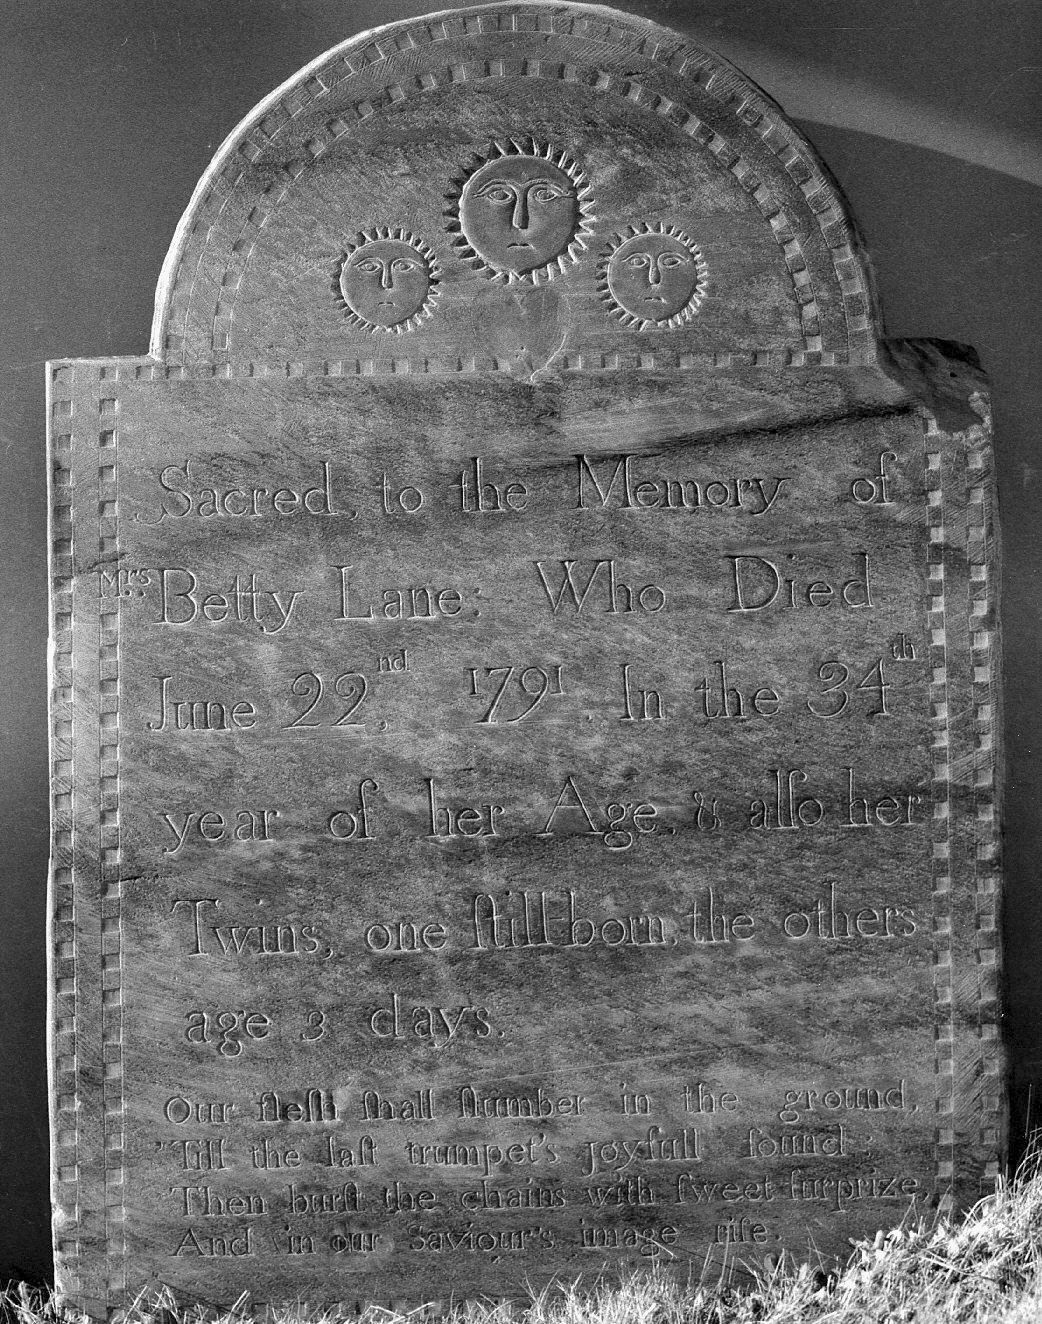 Sacred, to the Memory of
Mrs. Betty Lane: Who Died
June 22nd, 1791. In the 34th
year of her Age, & allſo her
Twins, one ſtill-born, the others
age 3 days.
Our fleſh ſhall ſlumber in the ground,
'Till the laſt trumpet's joyfull ſound;
Then burſt the chains with ſweet ſurprize,
And in our Saviour's image riſe.